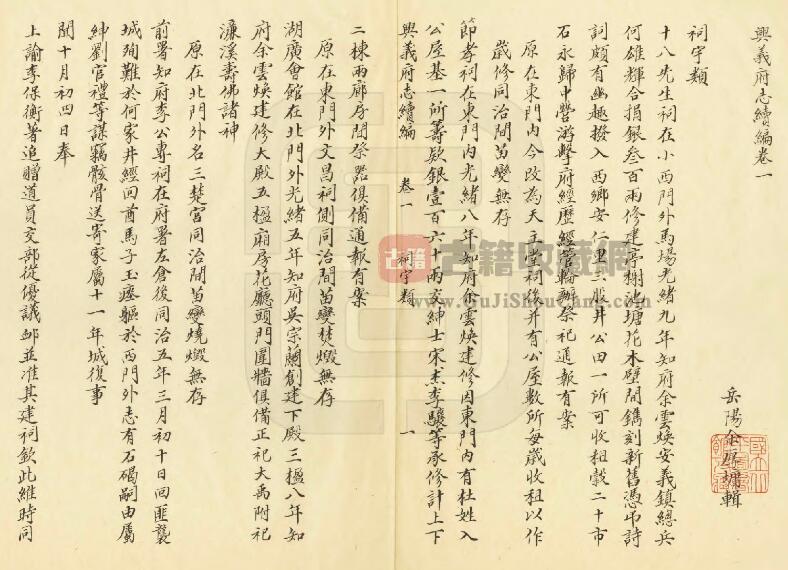 興義府志續編卷一
岳陽余厚墉輯
祠宇類
十八先生祠在小西門外馬場光緒九年知府余雲煥安義鎮總兵
何雄輝合捐銀叁百兩修建亭榭池塘花木壁間鐫刻新舊憑弔詩
詞頗有幽趣撥入西鄉安仁里三股井公田一所可收租穀二十市
石永歸中營游擊府經歷經管輪辦祭祀通報有案
原在東門內今改為天主堂祠後并有公屋數所每歲收租以作
歲修同治間苗變無存
節孝祠在東門內光緒八年知府余雲煥建修因東門內有杜姓入
公屋基一所籌款銀壹百六十兩交紳士宋杰李驤等承修計上下
興義府志續編 卷一 祠宇類 一
二棟兩廊房間祭器俱備通報有案
原在東門外文昌祠側同治間苗變焚燬無存
湖廣會館在北門外光緒五年知府吳宗蘭創建下殿三楹八年知
府余雲煥建修大殿五楹廂房花廳頭門圍牆俱備正祀大禹附祀
濂溪壽佛諸神
原在北門外名三楚宮同治間苗變燒燬無存
前署知府李公專祠在府署左倉後同治五年三月初十日回匪襲
城殉難於何家井經回酋馬子玉瘞軀於西門外志有石碣嗣由屬
紳劉官禮等謀竊骸骨送寄家屬十一年城復事
聞十月初四日奉
上諭李保衡著追贈道員交部從優議卹並准其建祠欽此維時同
古籍
古籍收藏網
www.GuJiShouCang.com